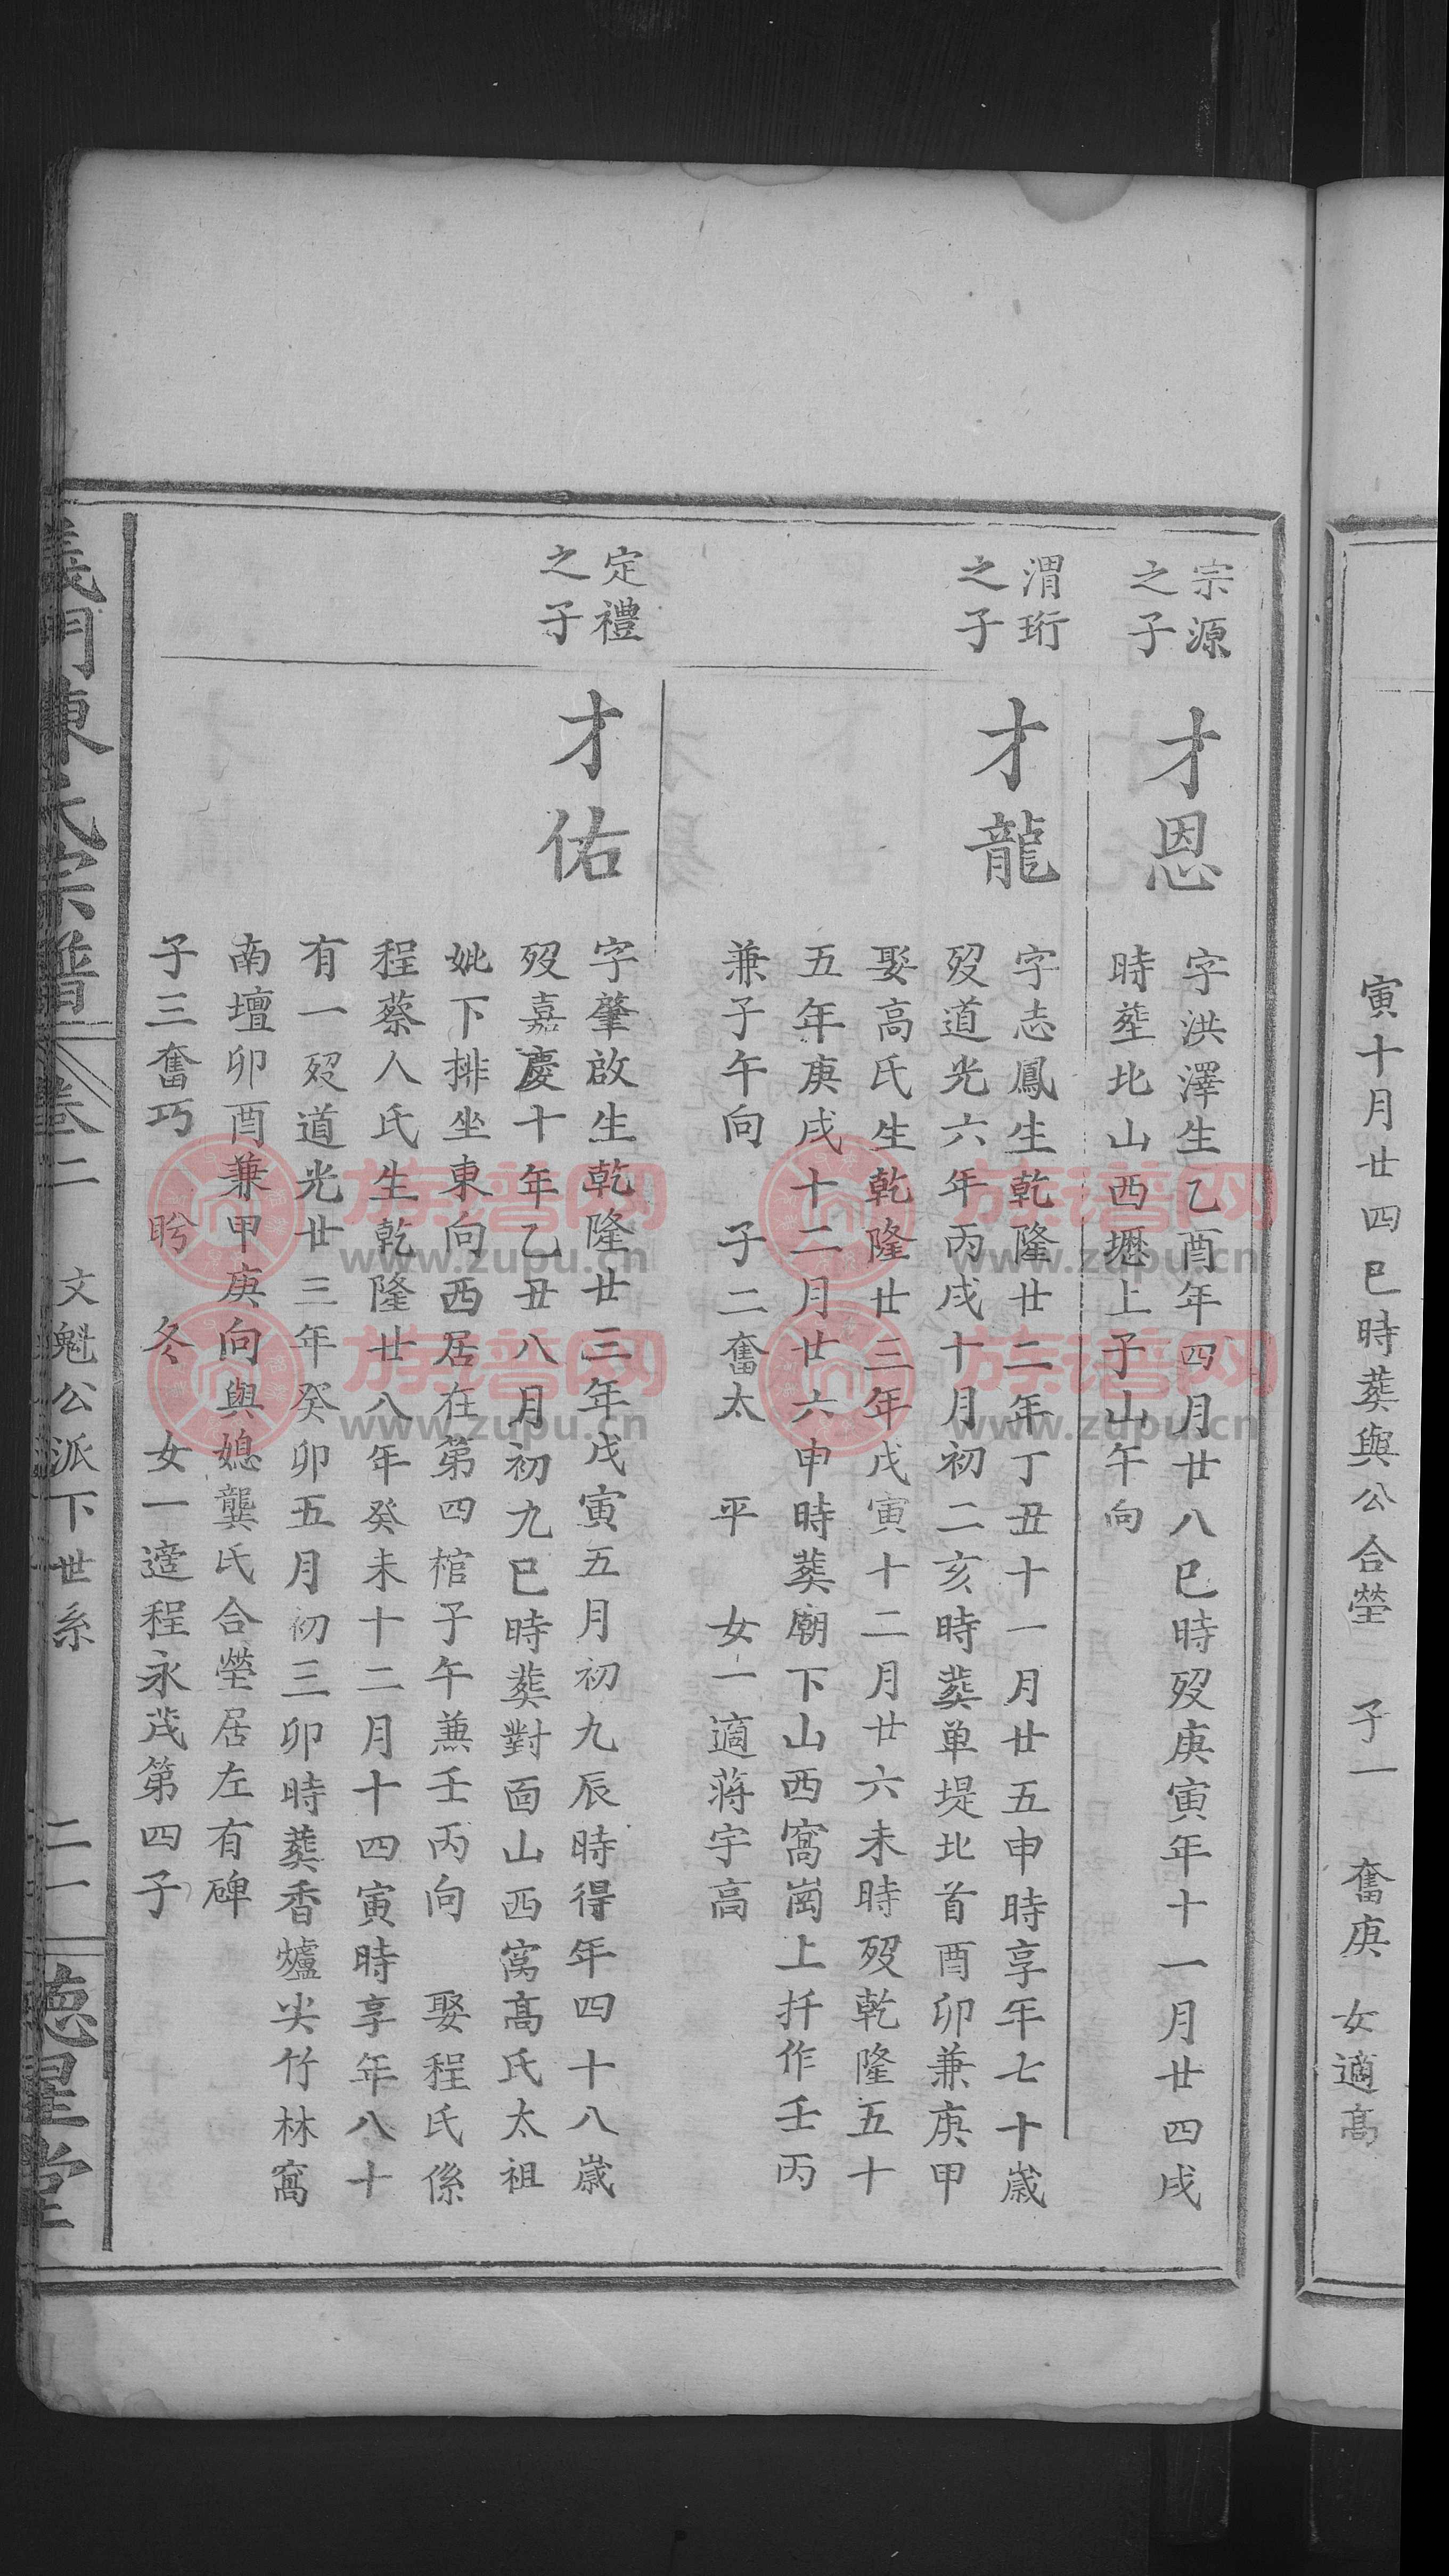 寅十月廿四巳時葬與公合塋 子一 奮庚 女適高
宗源
之子
才恩
字洪澤生乙酉年四月廿八巳時歿庚寅年十一月廿四戌
時塟北山西塆上子山午向
渭珩
之子
才龍
字志鳳生乾隆廿二年丁丑十一月廿五申時享年七十歲
歿道光六年丙戌十月初二亥時葬单堤北首酉卯兼庚甲
娶高氏生乾隆廿三年戊寅十二月廿六未時歿乾隆五十
五年庚戌十二月廿六申時葬廟下山西窩崗上扦作壬丙
兼子午向 子二奮太 平 女一適蔣宇高
定禮
之子
才佑
字肇啟生乾隆廿三年戊寅五月初九辰時得年四十八歲
歿嘉慶十年乙丑八月初九巳時葬對面山西窩高氏太祖
妣下排坐東向西居在第四棺子午兼壬丙向 娶程氏係
程蔡人氏生乾隆廿八年癸未十二月十四寅時享年八十
有一歿道光廿三年癸卯五月初三卯時葬香爐尖竹林窩
南壇卯酉兼甲庚向與媳龔氏合塋居左有碑
子三奮巧 盻 冬 女一適程永茂第四子
義門陳氏宗譜 卷二 文魁公派下世系 二一 德星堂
族谱网
www.zupu.cn
族谱网
www.zupu.cn
族谱网
www.zupu.cn
族谱网
www.zupu.cn